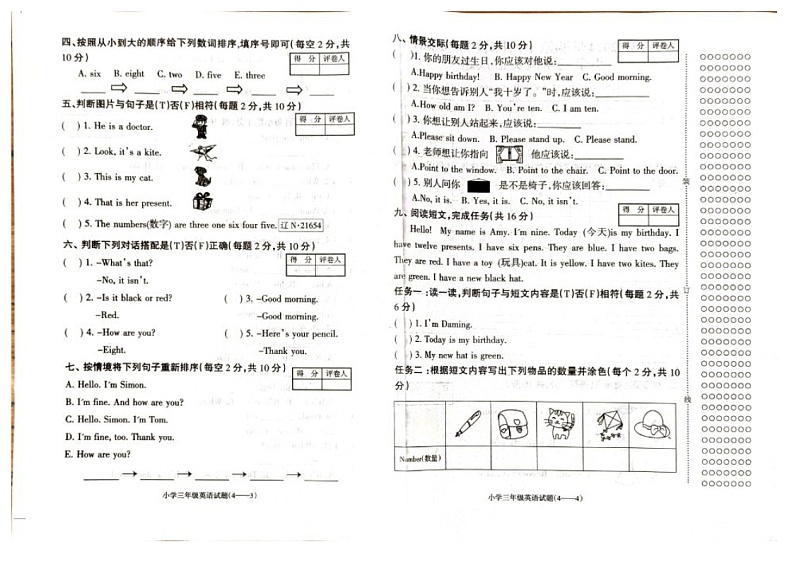 四、按照从小到大的顺序给下列数词排序,填序号即可(每空2分,共
10分)
得 分 评卷人
A. six B. eight C. two D. five E. three
五、判断图片与句子是(T)否(F)相符(每题2分,共10分)
得 分 评卷人
( )1. He is a doctor.
( )2. Look, it's a kite.
( )3. This is my cat.
( )4. That is her present.
( )5. The numbers(数字) are three one six four five. 辽N·21654
六、判断下列对话搭配是(T)否(F)正确(每题2分,共10分)
得 分 评卷人
( )1. –What's that?
–No, it isn't.
( )2. –Is it black or red? ( )3. –Good morning.
–Red. –Good morning.
( )4. –How are you? ( )5. –Here's your pencil.
–Eight. –Thank you.
七、按情境将下列句子重新排序(每空2分,共10分)
得 分 评卷人
A. Hello. I'm Simon.
B. I'm fine. And how are you?
C. Hello. Simon. I'm Tom.
D. I'm fine, too. Thank you.
E. How are you?
小学三年级英语试题(4——3)
八、情景交际(每题2分,共10分)
得 分 评卷人
( )1. 你的朋友过生日,你应该对他说:
A.Happy birthday! B. Happy New Year C. Good morning.
( )2. 当你想告诉别人“我十岁了。”时,应该说:
A.How old am I? B. You're ten. C. I am ten.
( )3. 你想让别人站起来,应该说:
A.Please sit down. B. Please stand up. C. Please stand.
( )4. 老师想让你指向 他应该说:
A.Point to the window. B. Point to the chair. C. Point to the door.
( )5. 别人问你 是不是椅子,你应该回答:
A.No, it is. B. Yes, it is. C. No, it isn't.
九、阅读短文,完成任务(共16分)
得 分 评卷人
Hello! My name is Amy. I'm nine. Today (今天)is my birthday. I
have twelve presents. I have six pens. They are blue. I have two bags.
They are red. I have a toy (玩具)cat. It is yellow. I have two kites. They
are green. I have a new black hat.
任务一:读一读,判断句子与短文内容是(T)否(F)相符(每题2分,共
6分)
( )1. I'm Daming.
( )2. Today is my birthday.
( )3. My new hat is green.
任务二:根据短文内容写出下列物品的数量并涂色(每个2分,共10
分)
Number(数量)
小学三年级英语试题(4——4)
装
订
线